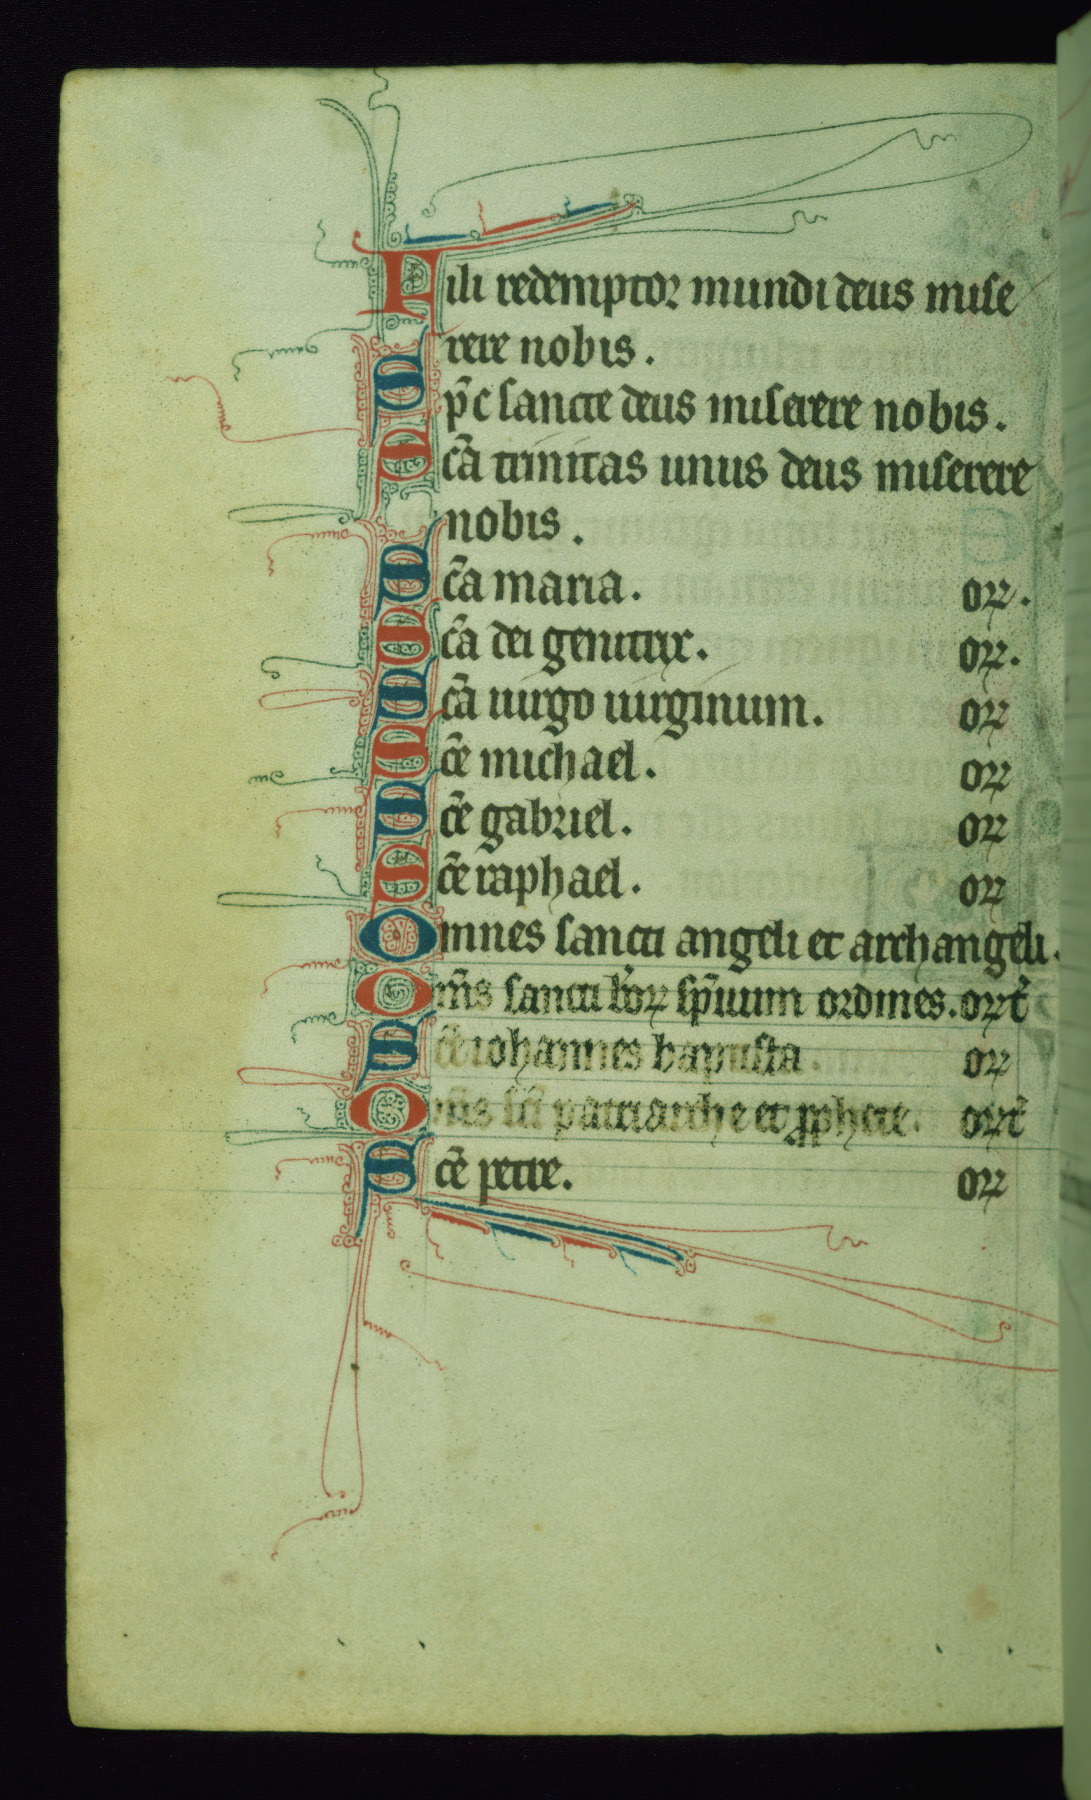 Fili redemptor mundi deus mise
rere nobis.
Sp̄c sancte deus miserere nobis.
Sc̄a trinitas unus deus miserere
nobis.
Sc̄a maria. orꝝ.
Sc̄a dei genitrix. orꝝ.
Sc̄a uirgo uirginum. orꝝ
Sc̄e michael. orꝝ
Sc̄e gabriel. orꝝ
Sc̄e raphael. orꝝ
Omnes sancti angeli et archangeli.
Om̄s sancti b̄orꝝ sp̄ituum ordines. orꝝt̄
Sc̄e iohannes baptista. orꝝ
Om̄s sc̄i patriarche et ꝓphete. orꝝt̄
Sc̄e petre. orꝝ